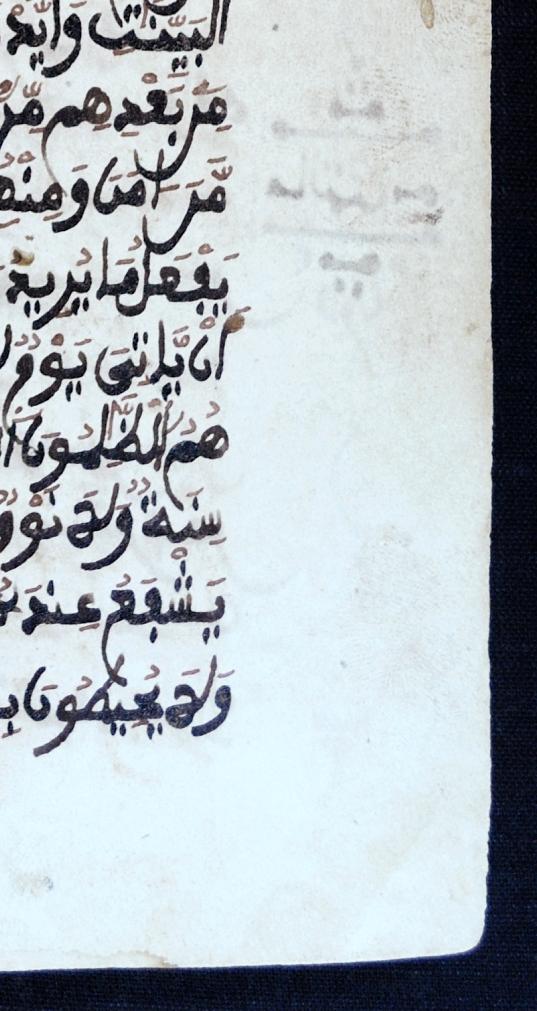 الْبَيِّنَٰتِ وَأَيَّدْ
مِنۢ بَعْدِهِم مِّن
مَّنَ ـامَنَ وَمِنْه
يَفْعَلُ مَا يُرِيدُ
أَنْ يَّاتِيَ يَوْمٌ ل
هُمُ الظَّٰلِمُونَ ا
سِنَةٌ وَلَا نَوْم
يَشْفَعُ عِندَه
وَلَا يُحِيطُونَ بِ